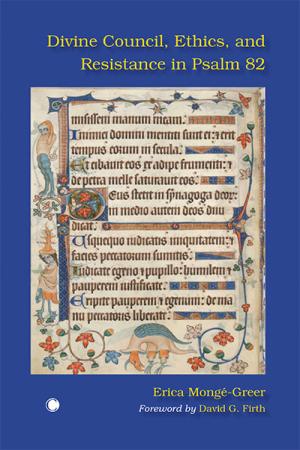 Divine Council, Ethics, and
Resistance in Psalm 82
misissem manum meam.
Inimici domini mentiti sunt ei: et erit
tempus eorum in secula.
Et cibauit eos ex adipe frumenti: et
de petra melle saturauit eos.
Deus stetit in synagoga deor:
in medio autem deos diiu
dicat.
Usquequo iudicatis iniquitatem: et
facies peccatorum sumitis.
Iudicate egeno et pupillo: humilem et
pauperem iustificate.
Eripite pauperem et egenum: de ma
nu peccatoris liberate.
Erica Mongé-Greer
Foreword by David G. Firth